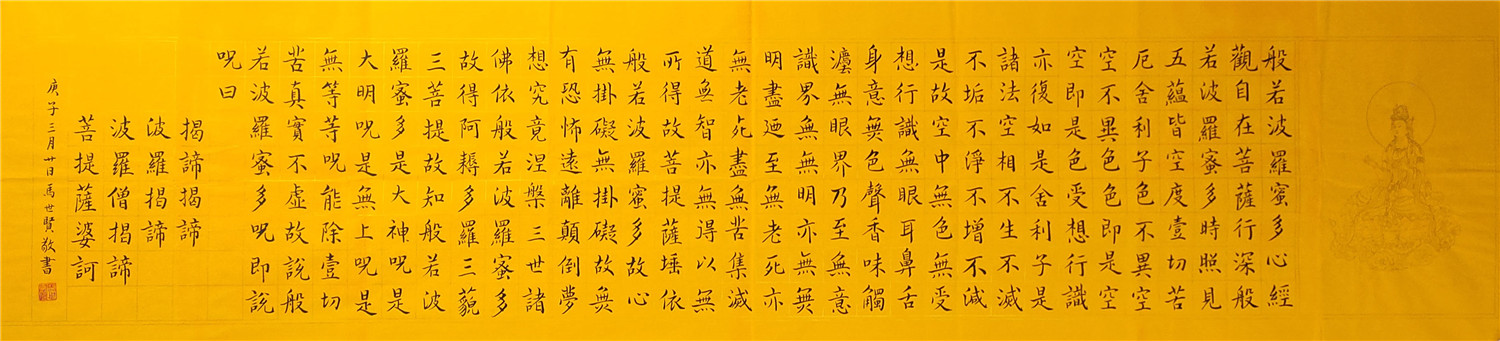 般若波羅蜜多心經
觀自在菩薩行深般
若波羅蜜多時照見
五蘊皆空度壹切苦
厄舍利子色不異空
空不異色色即是空
空即是色受想行識
亦復如是舍利子是
諸法空相不生不滅
不垢不淨不增不減
是故空中無色無受
想行識無眼耳鼻舌
身意無色聲香味觸
灋無眼界乃至無意
識界無無明亦無無
明盡廼至無老死亦
無老死盡無苦集滅
道無智亦無得以無
所得故菩提薩埵依
般若波羅蜜多故心
無掛礙無掛礙故無
有恐怖遠離顛倒夢
想究竟涅槃三世諸
佛依般若波羅蜜多
故得阿耨多羅三藐
三菩提故知般若波
羅蜜多是大神呪是
大明呪是無上呪是
無等等呪能除壹切
苦真實不虛故說般
若波羅蜜多呪即說
呪曰
揭諦揭諦
波羅揭諦
波羅僧揭諦
菩提薩婆訶
庚子三月廿日馬世賢敬書